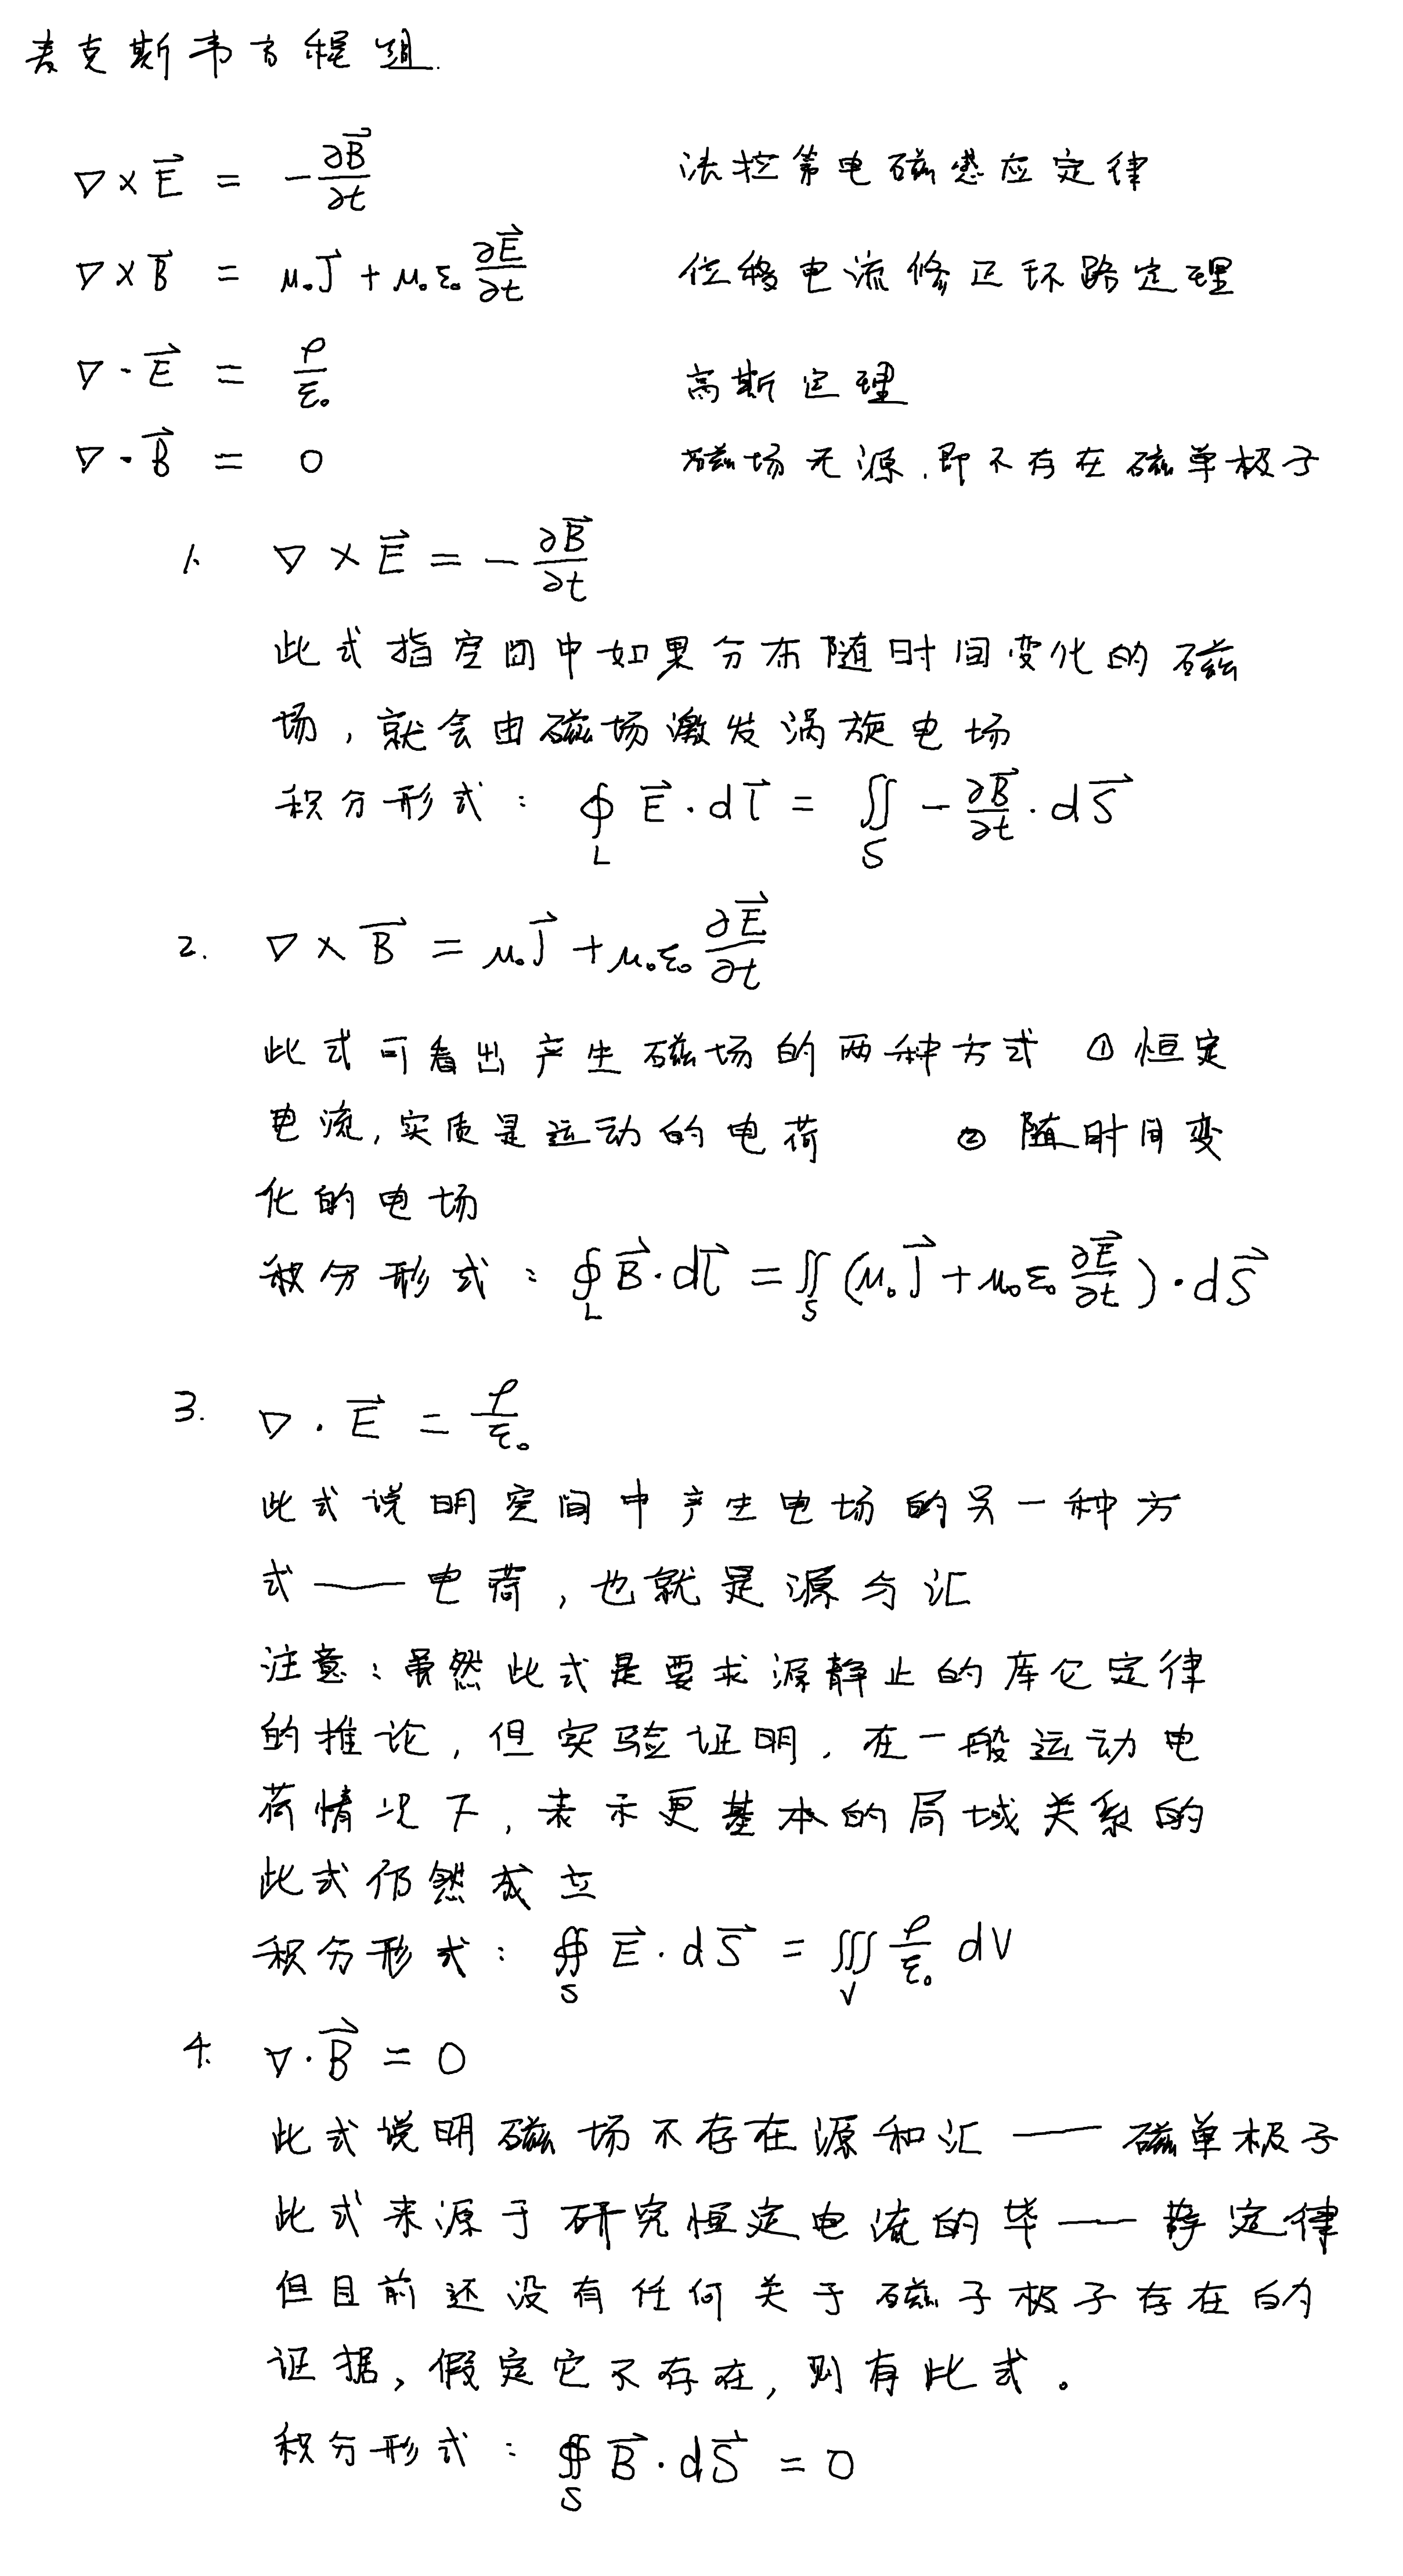 麦克斯韦方程组.
∇×E⃗ = -∂B⃗/∂t 法拉第电磁感应定律
∇×B⃗ = μ₀J⃗ + μ₀ε₀ ∂E⃗/∂t 位移电流修正环路定理
∇·E⃗ = ρ/ε₀ 高斯定理
∇·B⃗ = 0 磁场无源,即不存在磁单极子
1. ∇×E⃗ = -∂B⃗/∂t
此式指空间中如果分布随时间变化的磁
场,就会由磁场激发涡旋电场
积分形式: ∮_L E⃗·dl⃗ = ∬_S -∂B⃗/∂t·dS⃗
2. ∇×B⃗ = μ₀J⃗ + μ₀ε₀ ∂E⃗/∂t
此式可看出产生磁场的两种方式 ① 恒定
电流,实质是运动的电荷 ② 随时间变
化的电场
积分形式: ∮_L B⃗·dl⃗ = ∬_S (μ₀J⃗ + μ₀ε₀ ∂E⃗/∂t)·dS⃗
3. ∇·E⃗ = ρ/ε₀
此式说明空间中产生电场的另一种方
式——电荷,也就是源与汇
注意:虽然此式是要求源静止的库仑定律
的推论,但实验证明,在一般运动电
荷情况下,表示更基本的局域关系的
此式仍然成立
积分形式: ∯_S E⃗·dS⃗ = ∭_V ρ/ε₀ dV
4. ∇·B⃗ = 0
此式说明磁场不存在源和汇——磁单极子
此式来源于研究恒定电流的毕——萨定律
但目前还没有任何关于磁子极子存在的
证据,假定它不存在,则有此式。
积分形式: ∯_S B⃗·dS⃗ = 0